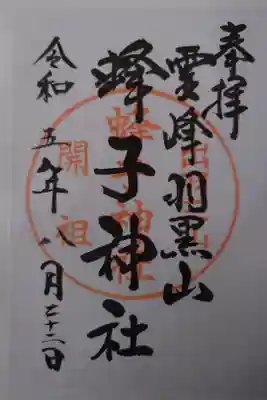 奉拝
霊峰羽黒山
蜂子神社
令和五年八月二十二日
開祖
蜂子神社